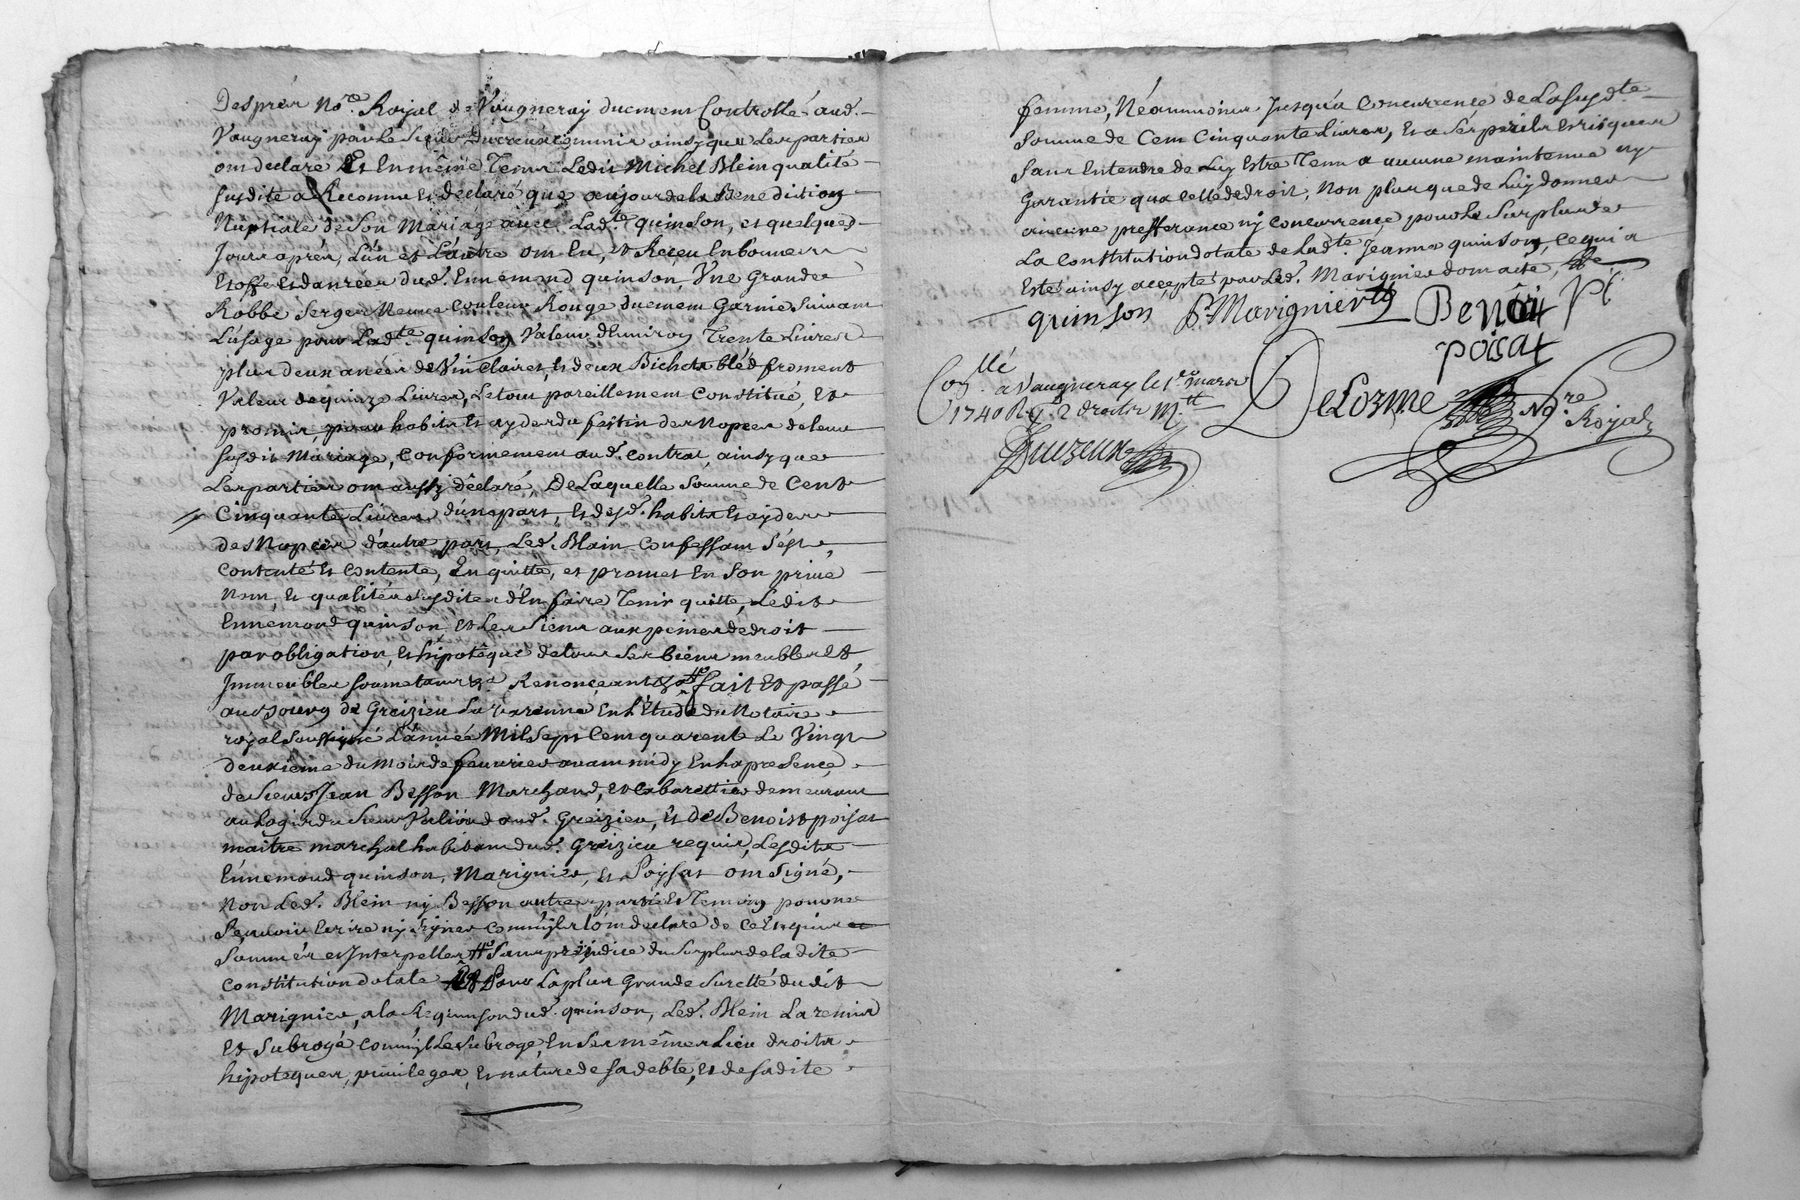 Desprès No.re Royal de Vaugneray duement Controllé aud.
Vaugneray par le Sieur Ducreux commis ainsy que les parties
ont declaré Et En même Tems Ledit Michel Blein qualité
susdite a Reconnu et declaré que aujour de la Benediction
Nuptiale de Son Mariage avec Lad.te quinson, et quelques
Jours après, L'un et L'autre ont Eu, et Receu En bonnes
Etoffes et danrées dud. Ennemond quinson, Vne grande
Robbe Serge Neuve couleur Rouge duement Garnie Suivant
L'usage pour Lad.te quinson Valeur d'Environ Trente Livres
plus deux anées de Vin Clairet, et deux Bichets bléd froment
Valeur de quinze Livres, Le tout pareillement Constitué, et
promis, pour habits et ayder du festin des Nopces de leur
susdit Mariage, Conformement aud. contrat, ainsy que
Les parties ont aussy déclaré, De Laquelle Somme de Cent
Cinquante Livres d'une part, et desd. habits et ayder
des Nopces d'autre part, Led. Blain Confessant s'est
contenté et contente, En quitte, et promet En Son privé
Nom, et qualités susdites d'En faire Tenir quitte, Ledit
Ennemond quinson, et Les Siens aux peines de droit
par obligation, et hipoteque de tous Ses biens meubles et
Immeubles soumetant &.a Renonçant &.a # fait Et passé
aud. bourg de Greizieu La Varenne En L'Etude du Notaire
royal soussigné L'année Mil Sept Cent quarente Le Vingt
deuxième du Mois de fevrier avant midy En la presence
de Sieur Jean Besson Marchand, et Cabarettier demeurant
au Logis du Sieur aud. Greizieu, Et De Benoist poisat
maitre marchal habitant dud. Greizieu requis, Lesdits
Ennemond quinson, Marignier, et Poysat ont Signé,
Non Led. Blein ny Besson autres partie et Temoins pour ne
Sçavoir Ecrire ny Signer comm'ils l'ont declaré de ce Enquis
Sommés et Interpellés # Sans prejudice du Surplus de la dite
constitution dotale Et Pour La plus Grande Suretté dudit
Marignier, a la Requisition dud. quinson, Led. Blein La remis
Et Subrogé, comm'il Le Subroge, En Ses mêmes Lieu droits
hipoteques, privileges, et nature de sa debte, et de sadite
femme, Néammoins Jusqu'a Concurrence de La susd.te
Somme de Cent Cinquante Livres, Et a Ses perils Et risques
Sans Entendre de Luy Estre Tenu a aucune maintenue ny
Garantie qua Celle de droit, Non plus que de Luy donner
aucune presferance ny concurrence pour Le Surplus de
La constitution dotale de Lad.te Jeanne quinson, ce qui a
Esté ainsy accepté par Led. Marignier dont acte,
quinson P. Marignier Benoit
poisat
Con.llé a Vaugneray le 1.er mars
1740 R. 2 droits
Ducreux
DeLorme No.re
Royal